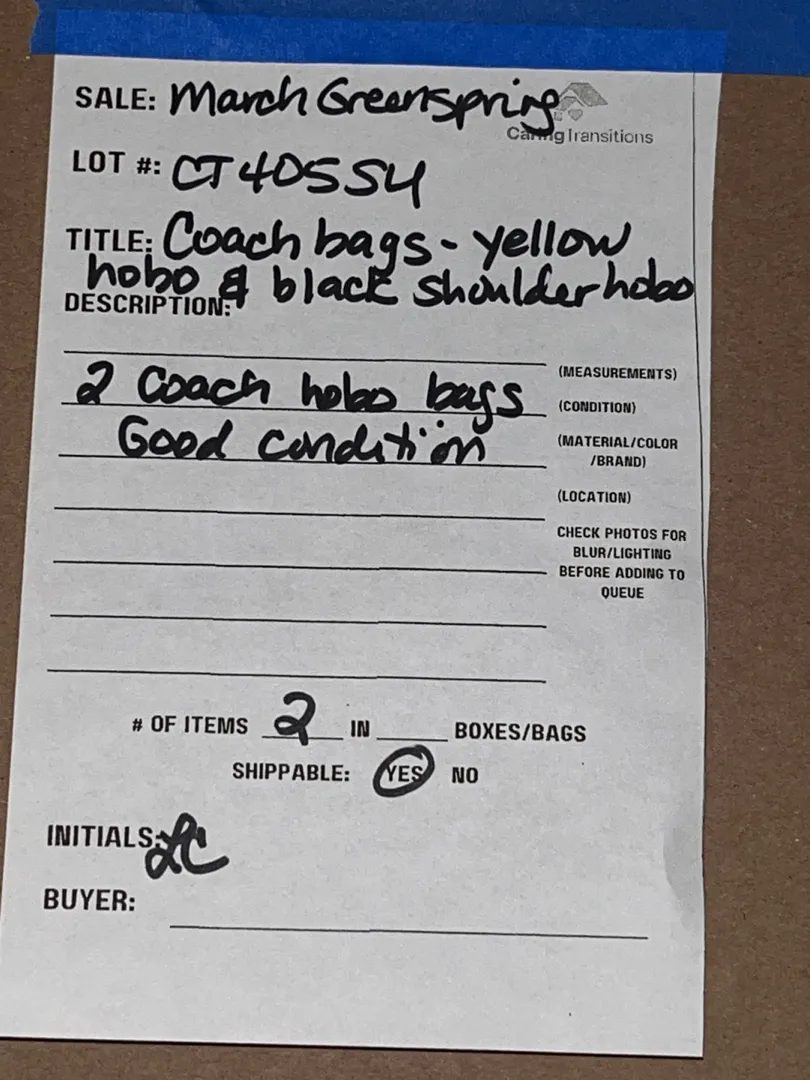 SALE: March Greenspring
Caring Transitions
LOT #: CT40554
TITLE: Coach bags - yellow
hobo & black shoulder hobo
DESCRIPTION:
(MEASUREMENTS)
2 Coach hobo bags
(CONDITION)
Good condition
(MATERIAL/COLOR
/BRAND)
(LOCATION)
CHECK PHOTOS FOR
BLUR/LIGHTING
BEFORE ADDING TO
QUEUE
# OF ITEMS 2 IN BOXES/BAGS
SHIPPABLE: YES NO
INITIALS: LC
BUYER: